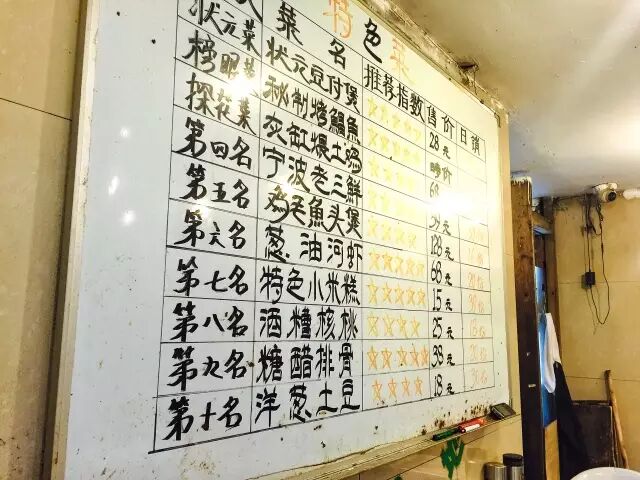 特色菜
菜名 推荐指数 售价 日销
状元菜 状元豆付煲 28元
榜眼菜 秘制烤鳗鱼 時价
探花菜 灰缸煨土鸡 68
第四名 宁波老三鲜
第五名 魚头煲 128元
第六名 葱油河虾 68元
第七名 特色小米糕 ☆☆☆☆☆ 15元
第八名 酒糟核桃 ☆☆☆☆ 25元
第九名 糖醋排骨 ☆☆☆☆☆ 38元
第十名 洋葱土豆 ☆☆☆☆ 18元